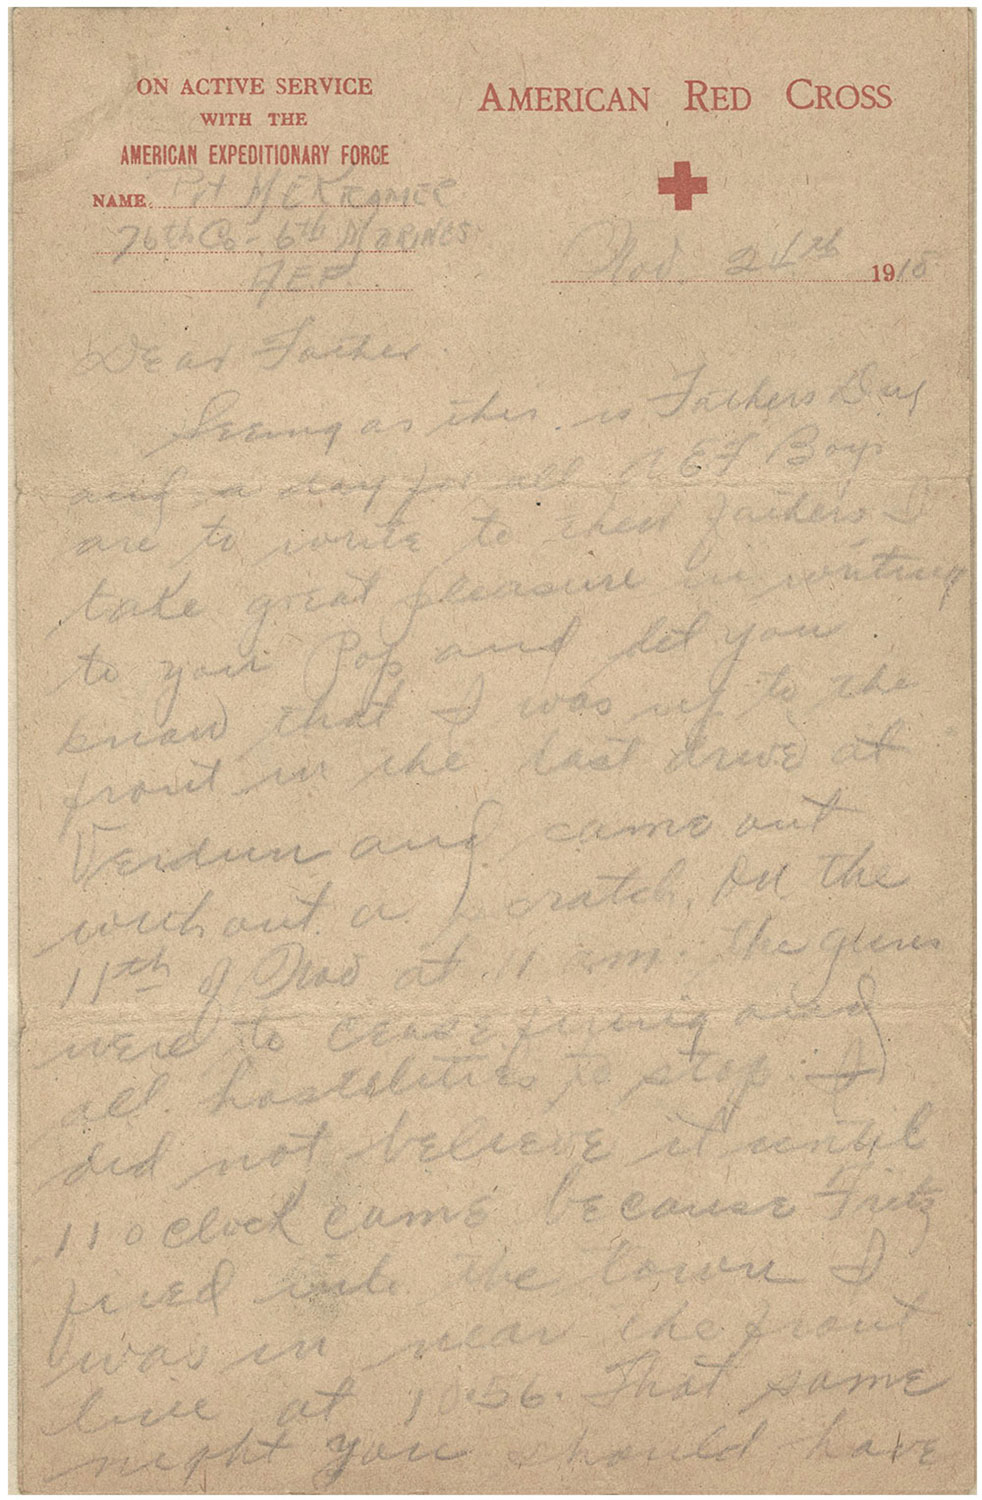 ON ACTIVE SERVICE
WITH THE
AMERICAN EXPEDITIONARY FORCE
AMERICAN RED CROSS
NAME Pvt M E Kramer
76th Co - 6th Marines
AEF.
Nov 24th 1918
Dear Father
Seeing as this is Fathers Day
and a day for all AEF Boys
are to write to their fathers I
take great pleasure in writing
to you Pop and let you
know that I was up to the
front in the last drive at
Verdun and came out
without a scratch. On the
11th of Nov at 11 am. the guns
were to cease firing and
all hostilities to stop. I
did not believe it until
11 o clock came because Fritz
fired into the town I
was in near the front
line at 10:56. That same
night you should have